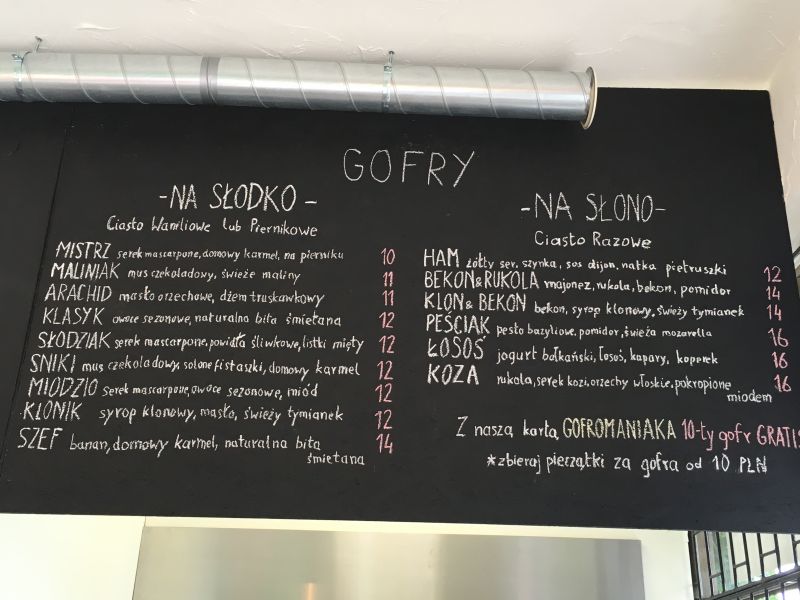 GOFRY
-NA SŁODKO-
Ciasto Waniliowe lub Piernikowe
MISTRZ serek mascarpone, domowy karmel, na pierniku 10
MALINIAK mus czekoladowy, świeże maliny 11
ARACHID masło orzechowe, dżem truskawkowy 11
KLASYK owoce sezonowe, naturalna bita śmietana 12
SŁODZIAK serek mascarpone, powidła śliwkowe, listki mięty 12
SNIKI mus czekoladowy, solone fistaszki, domowy karmel 12
MIODZIO serek mascarpone, owoce sezonowe, miód 12
KLONIK syrop klonowy, masło, świeży tymianek 12
SZEF banan, domowy karmel, naturalna bita 14
śmietana
-NA SŁONO-
Ciasto Razowe
HAM żółty ser, szynka, sos dijon, natka pietruszki 12
BEKON&RUKOLA majonez, rukola, bekon, pomidor 14
KLON & BEKON bekon, syrop klonowy, świeży tymianek 14
PEŚCIAK pesto bazyliowe, pomidor, świeża mozarella 16
ŁOSOŚ jogurt bałkański, łosoś, kapary, koperek 16
KOZA rukola, serek kozi, orzechy włoskie, pokropione 16
miodem
Z naszą kartą GOFROMANIAKA 10-ty gofr GRATIS
*zbieraj pieczątki za gofra od 10 PLN